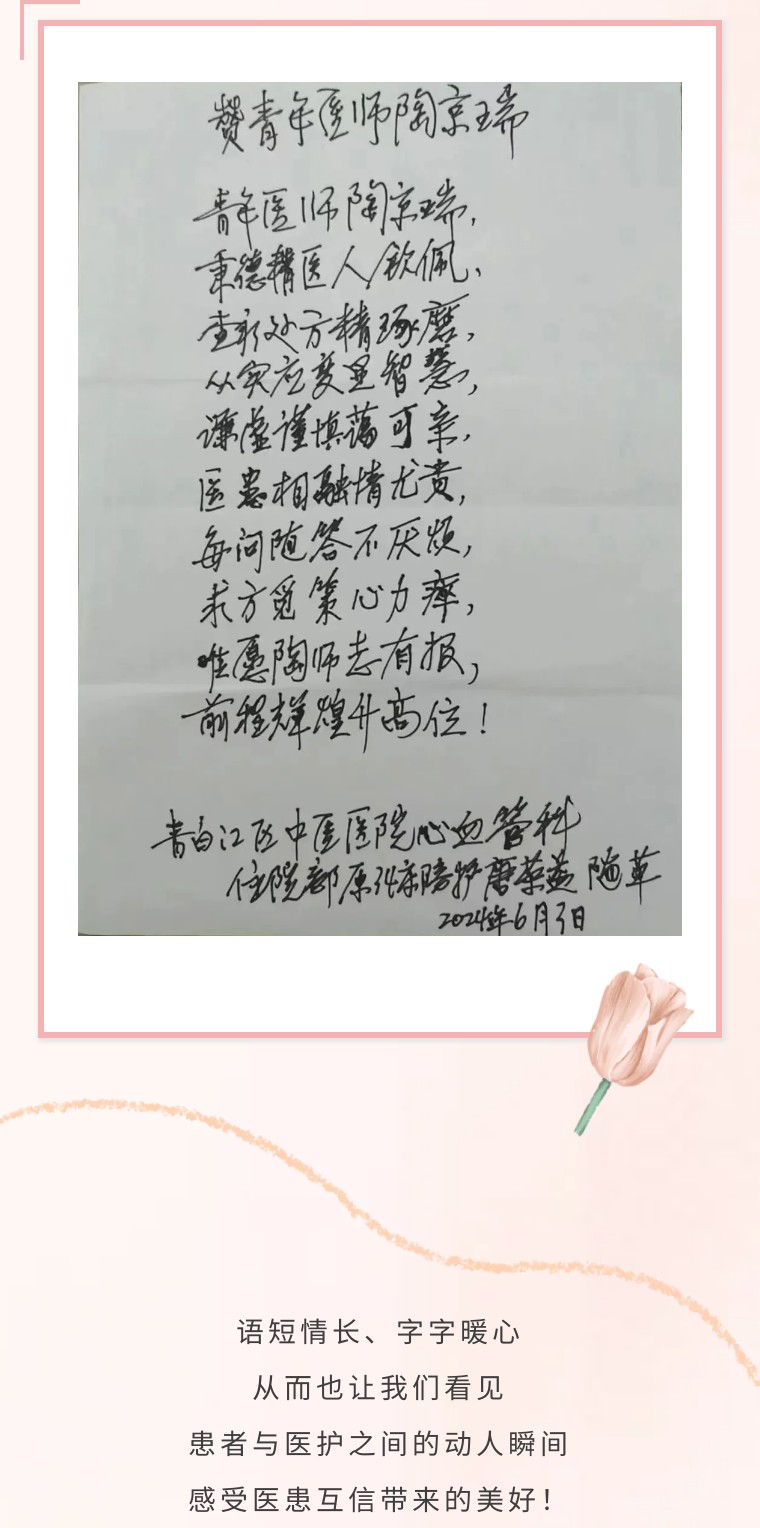 赞青年医师陶京瑞
青年医师陶京瑞,
秉德精医人钦佩、
查新处方精琢磨,
从实应变显智慧,
谦虚谨慎蔼可亲,
医患相融情尤贵,
每问随答不厌烦,
求方觅策心力瘁,
唯愿陶师志有报,
前程辉煌升高位!
青白江区中医医院心血管科
住院部原34床陪护
2024年6月3日
语短情长、字字暖心
从而也让我们看见
患者与医护之间的动人瞬间
感受医患互信带来的美好!